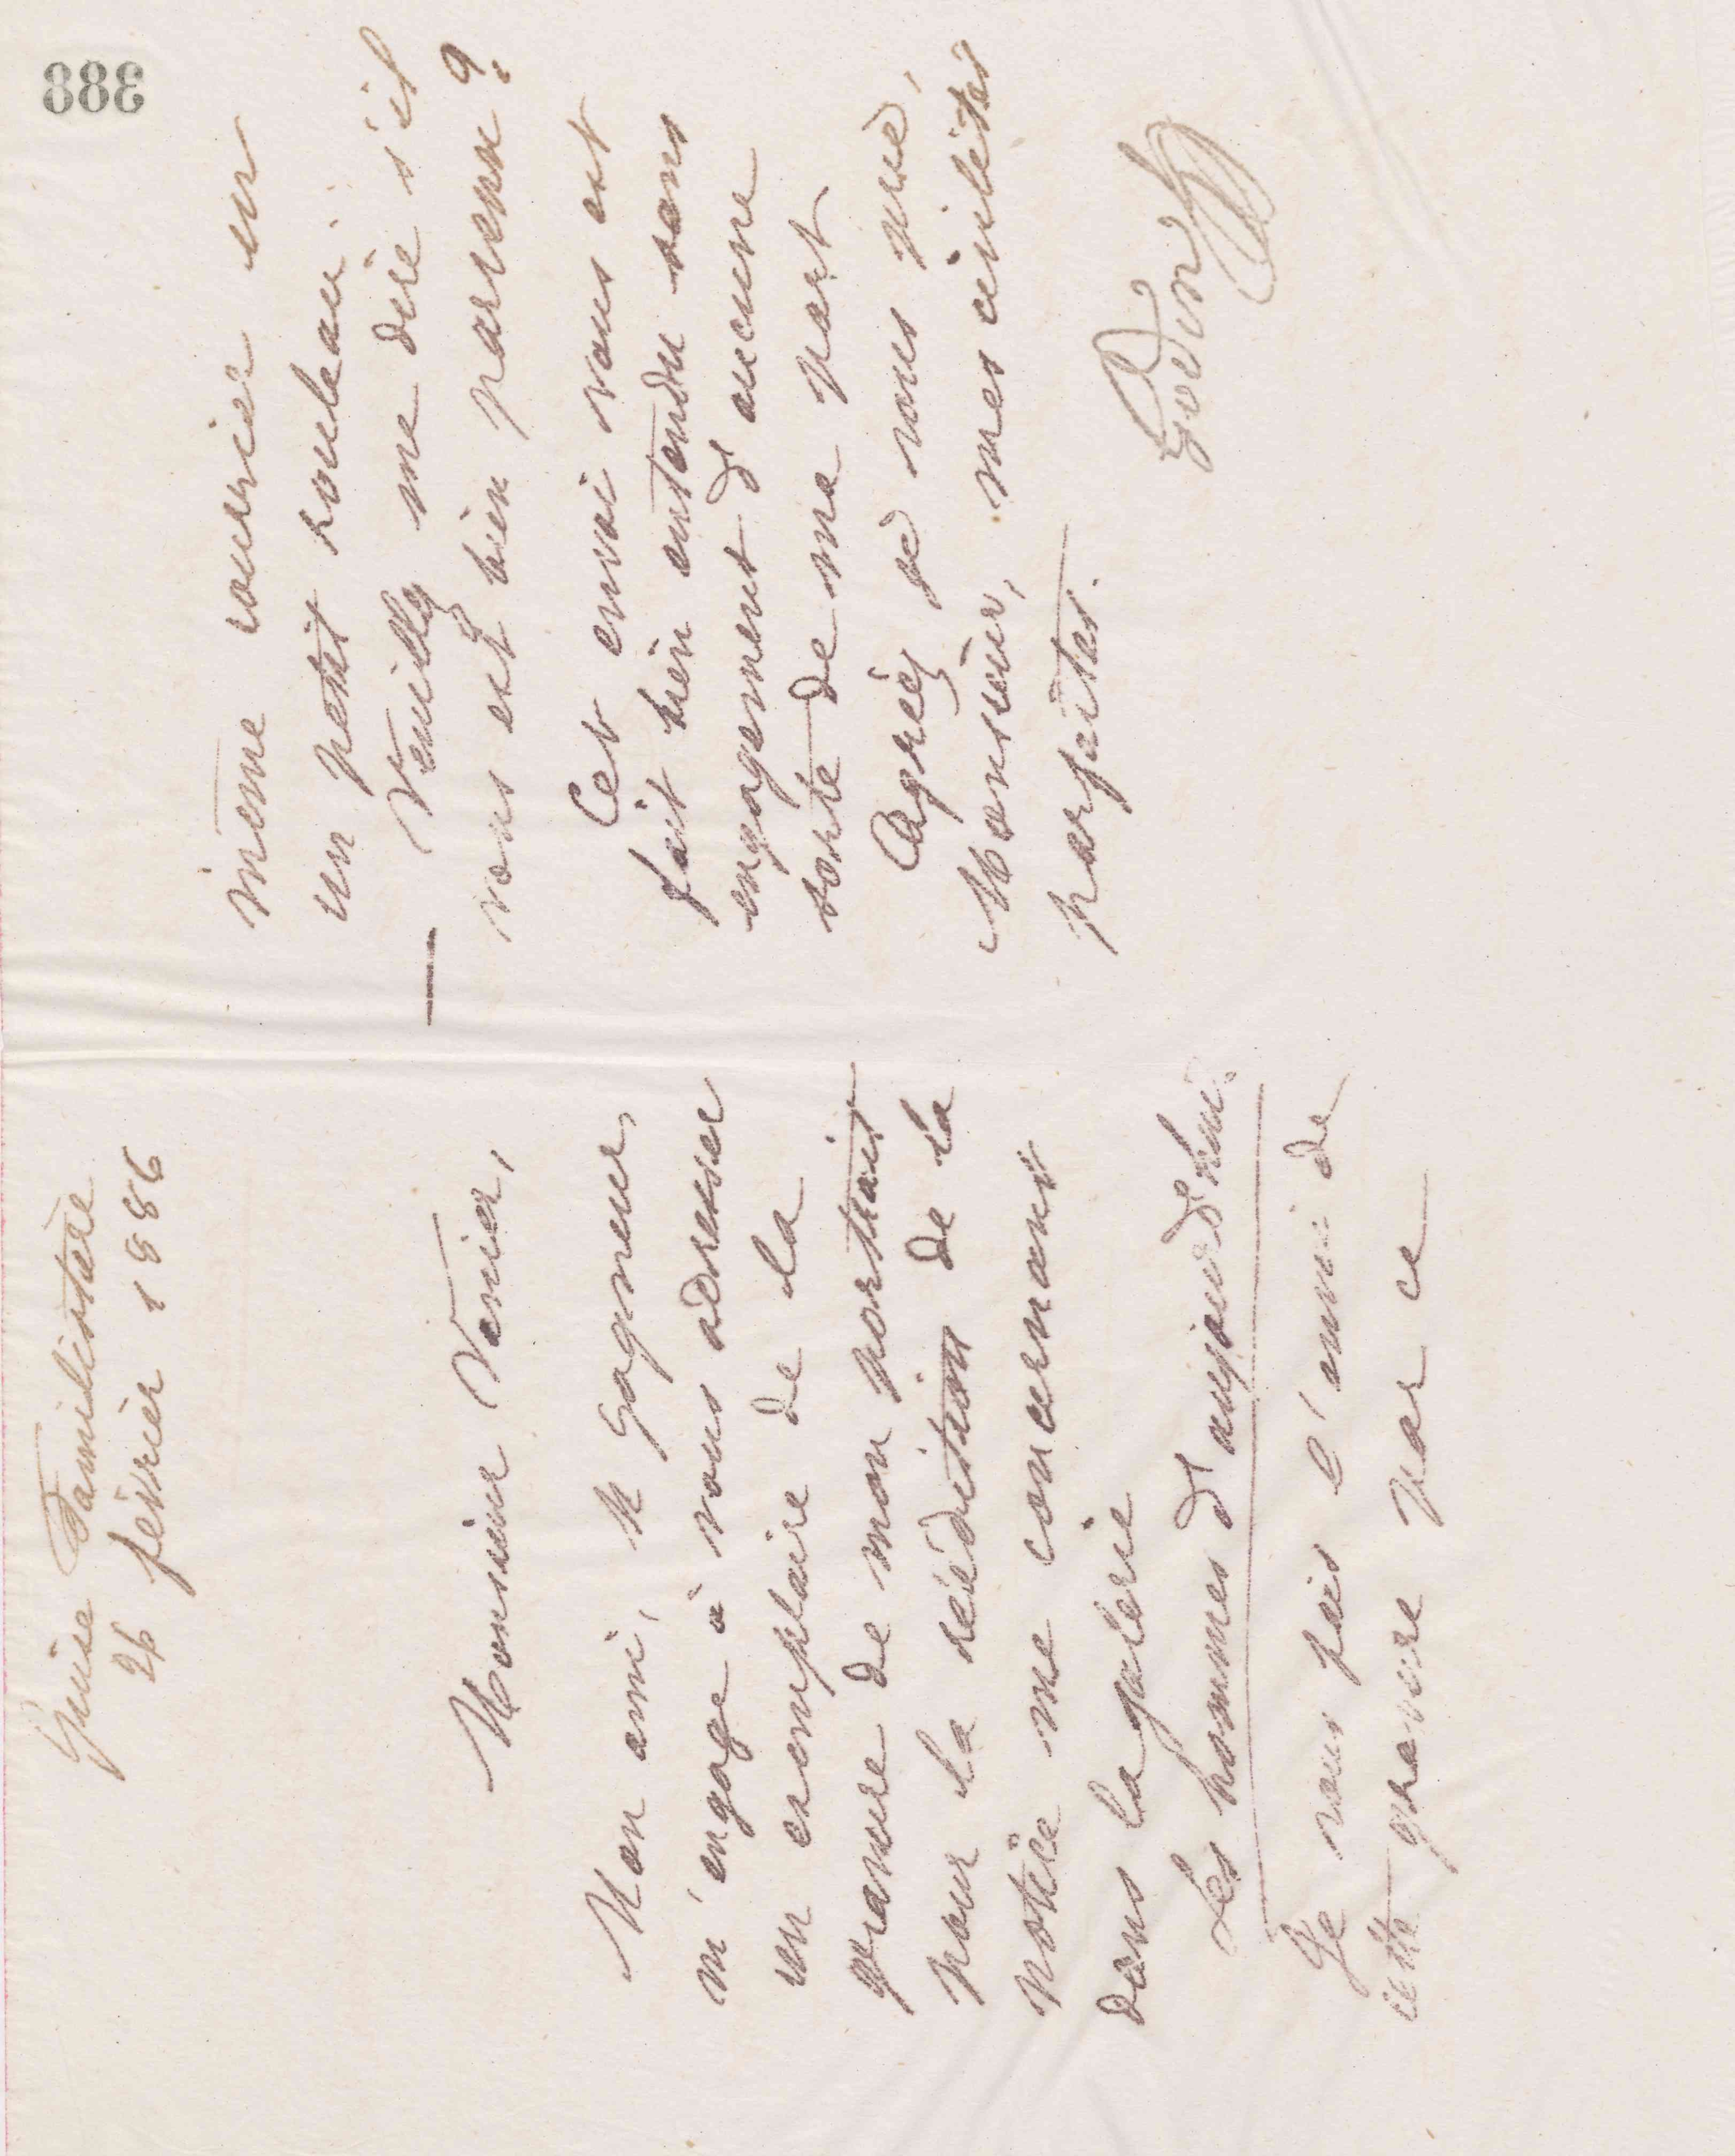 388
Guise Familistère
26 février 1886
Monsieur Vevier,
Mon ami, M Gagneur,
m'engage à vous adresser
un exemplaire de la
gravure de mon portrait
pour la réédition de la
notice me concernant
dans la galerie
Les hommes d'aujourd'hui.
Je vous fais l'envoi de
cette gravure par ce
même courrier en
un petit rouleau.
— Veuillez me dire s'il
vous est bien parvenu?
Cet envoi vous est
fait bien entendu sans
engagement d'aucune
sorte de ma part
Agréez je vous prie,
Monsieur, mes civilités
parfaites.
Godin